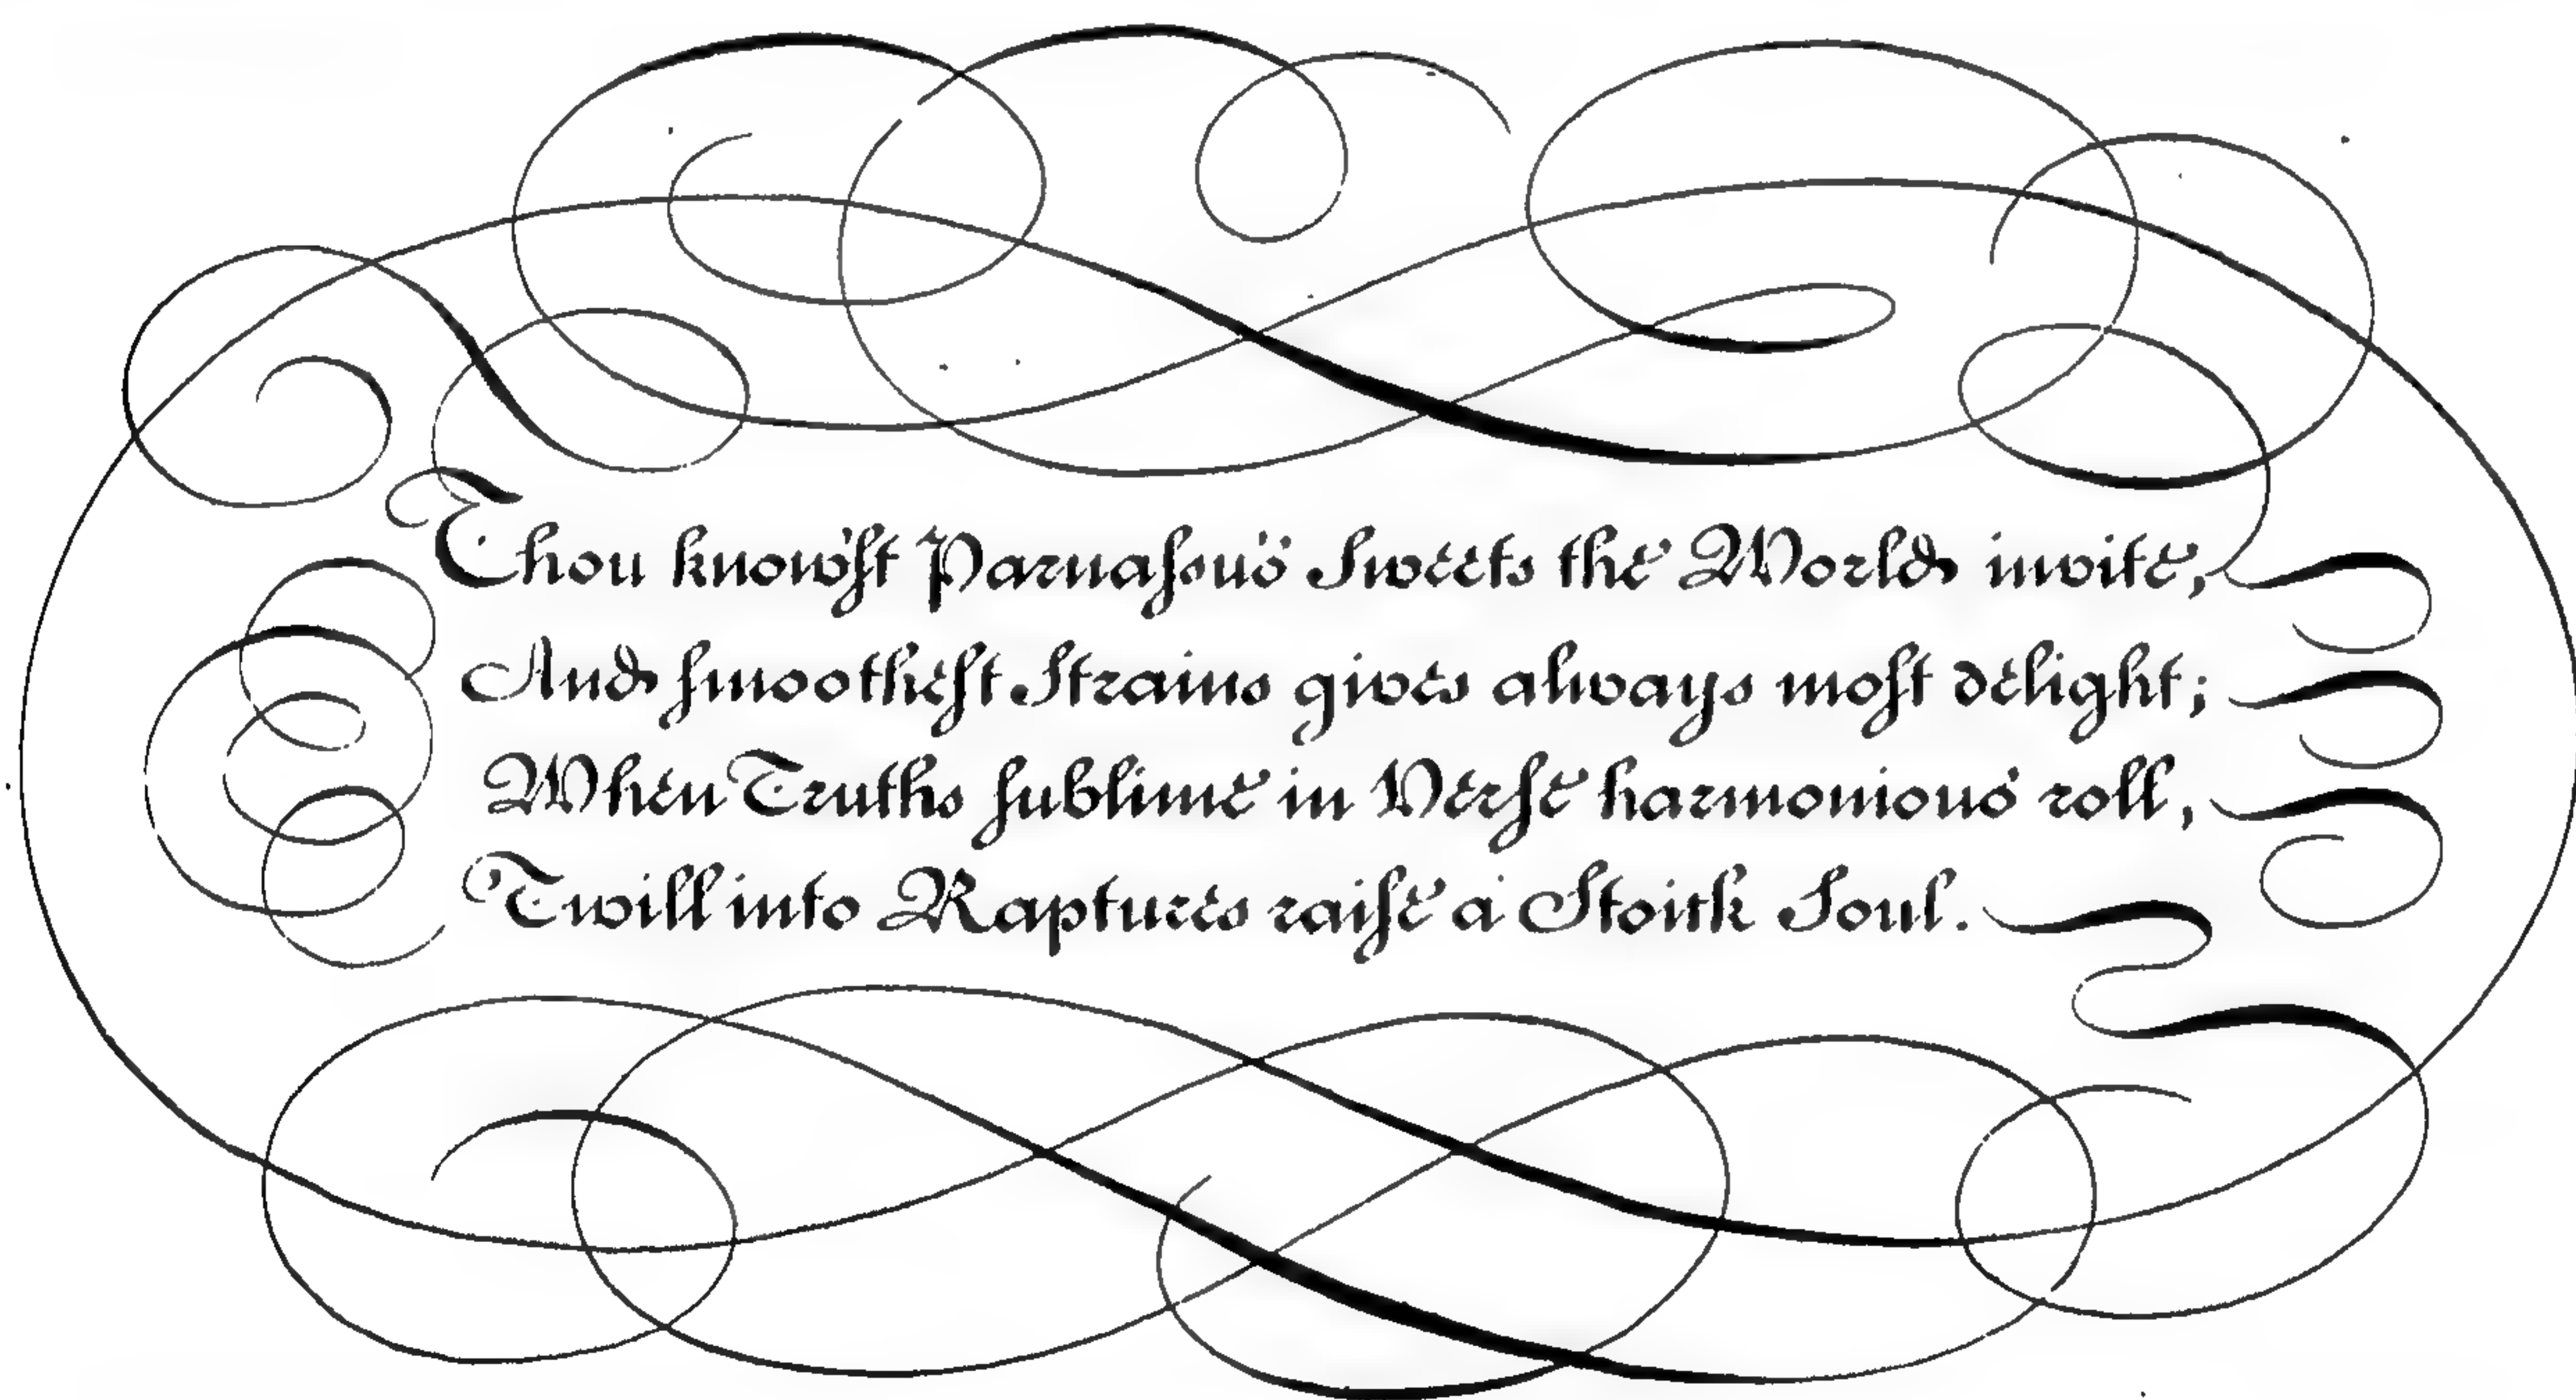 Thou know'st Parnassus Sweets the World invite,
And smoothest Strains gives always most delight;
When Truths sublime in Verse harmonious roll,
'Twill into Raptures raise a Stoick Soul.